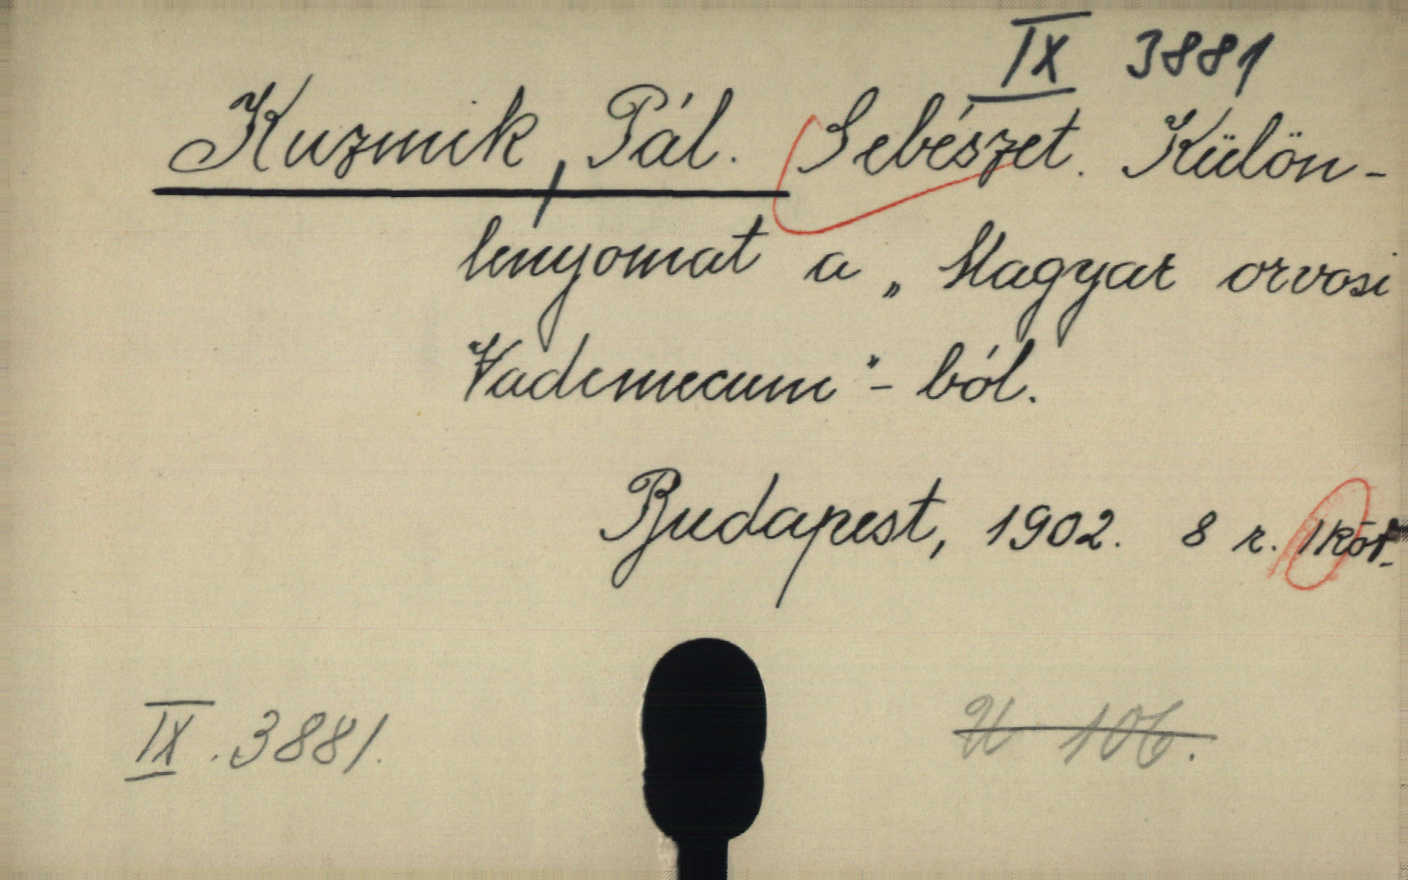 IX 3881
Kuzmik, Pál. Sebészet. Külön-
lenyomat a „Magyar orvosi
Vademecum"-ból.
Budapest, 1902. 8 r. 1 köt.
IX. 3881.
U 106.